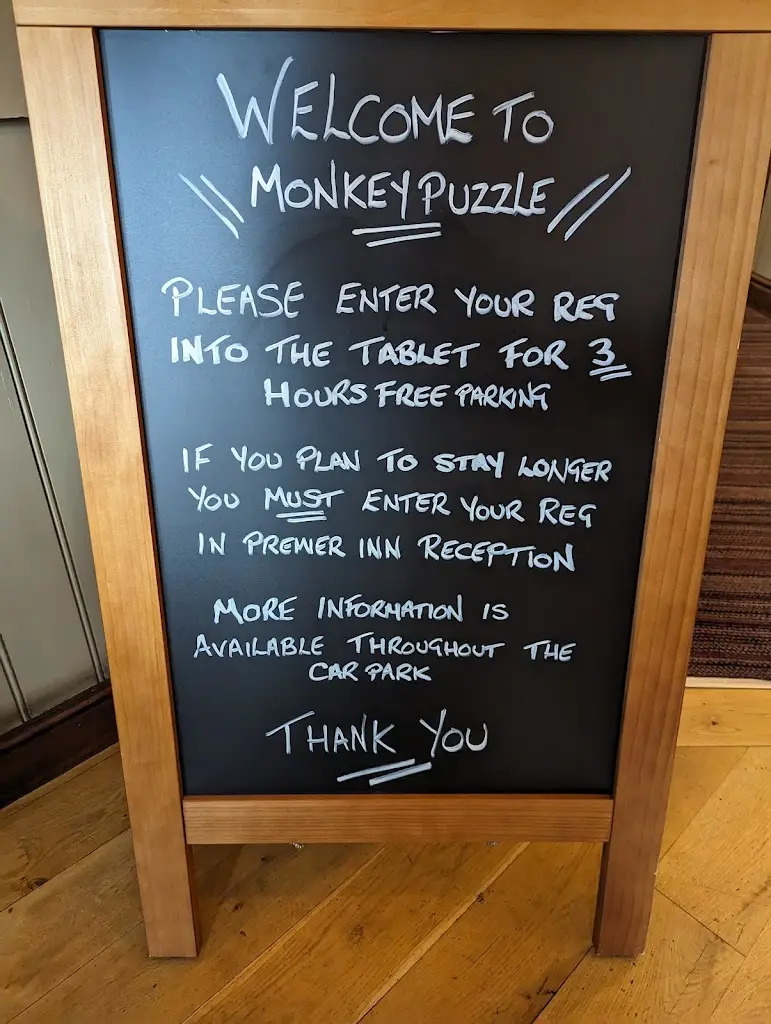 WELCOME TO
MONKEY PUZZLE
PLEASE ENTER YOUR REG
INTO THE TABLET FOR 3
HOURS FREE PARKING
IF YOU PLAN TO STAY LONGER
YOU MUST ENTER YOUR REG
IN PREMIER INN RECEPTION
MORE INFORMATION IS
AVAILABLE THROUGHOUT THE
CAR PARK
THANK YOU